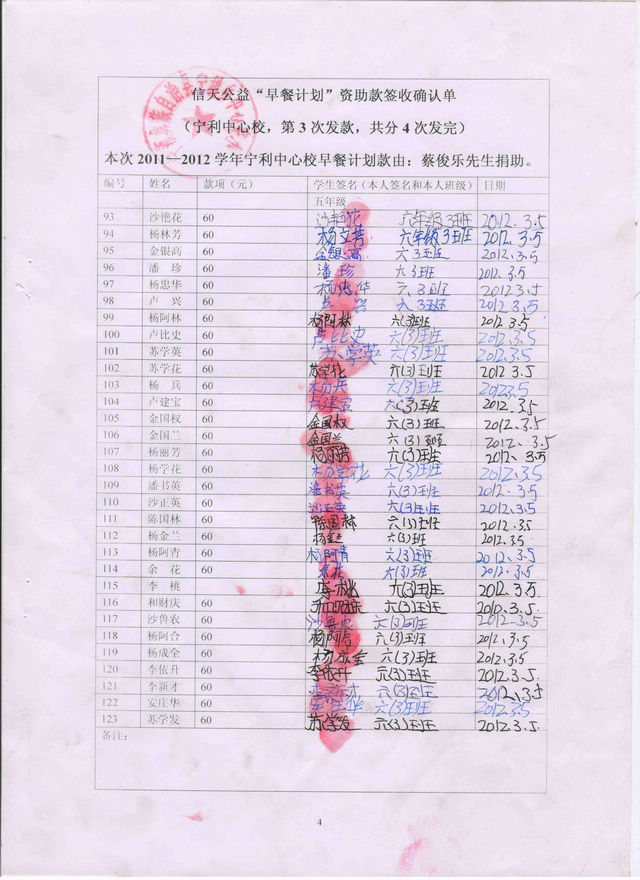 信天公益“早餐计划”资助款签收确认单
（宁利中心校，第 3 次发款，共分 4 次发完）
本次 2011—2012 学年宁利中心校早餐计划款由：蔡俊乐先生捐助。
编号 姓名 款项（元） 学生签名（本人签名和本人班级） 日期
五年级
93 沙艳花 60 沙艳花 六年级3班 2012.3.5
94 杨林芳 60 六年级3班 2012.3.5
95 金银高 60 金银高 六3班 2012.3.5
96 潘 珍 60 潘珍 六3班 2012.3.5
97 杨忠华 60 杨忠华 六3班 2012.3.5
98 卢 兴 60 卢兴 六3班 2012.3.5
99 杨阿林 60 杨阿林 六(3)班 2012.3.5
100 卢比史 60 卢比史 六(3)班 2012.3.5
101 苏学英 60 苏学英 六(3)班 2012.3.5
102 苏学花 60 苏学花 六(3)班 2012.3.5
103 杨 兵 60 杨兵 六(3)班 2012.3.5
104 卢建宝 60 卢建宝 六(3)班 2012.3.5
105 金国权 60 金国权 六(3)班 2012.3.5
106 金国兰 60 金国兰 六(3)班 2012.3.5
107 杨丽芳 60 杨丽芳 六(3)班 2012.3.5
108 杨学花 60 杨学花 六(3)班 2012.3.5
109 潘书英 60 潘书英 六(3)班 2012.3.5
110 沙正英 60 沙正英 六(3)班 2012.3.5
111 陈国林 60 陈国林 六(3)班 2012.3.5
112 杨金兰 60 杨金兰 六(3)班 2012.3.5
113 杨阿青 60 杨阿青 六(3)班 2012.3.5
114 余 花 60 余花 六(3)班 2012.3.5
115 李 桃 李桃 六(3)班 2012.3.5
116 和财庆 60 六(3)班 2010.3.5
117 沙鲁农 60 六(3)班 2012.3.5
118 杨阿合 60 杨阿合 六(3)班 2012.3.5
119 杨成全 60 杨成全 六(3)班 2012.3.5
120 李依升 60 李依升 六(3)班 2012.3.5
121 李新才 60 李新才 六(3)班 2012.3.5
122 安庄华 60 安庄华 六(3)班 2012.3.5
123 苏学发 60 苏学发 六(3)班 2012.3.5
备注：
4